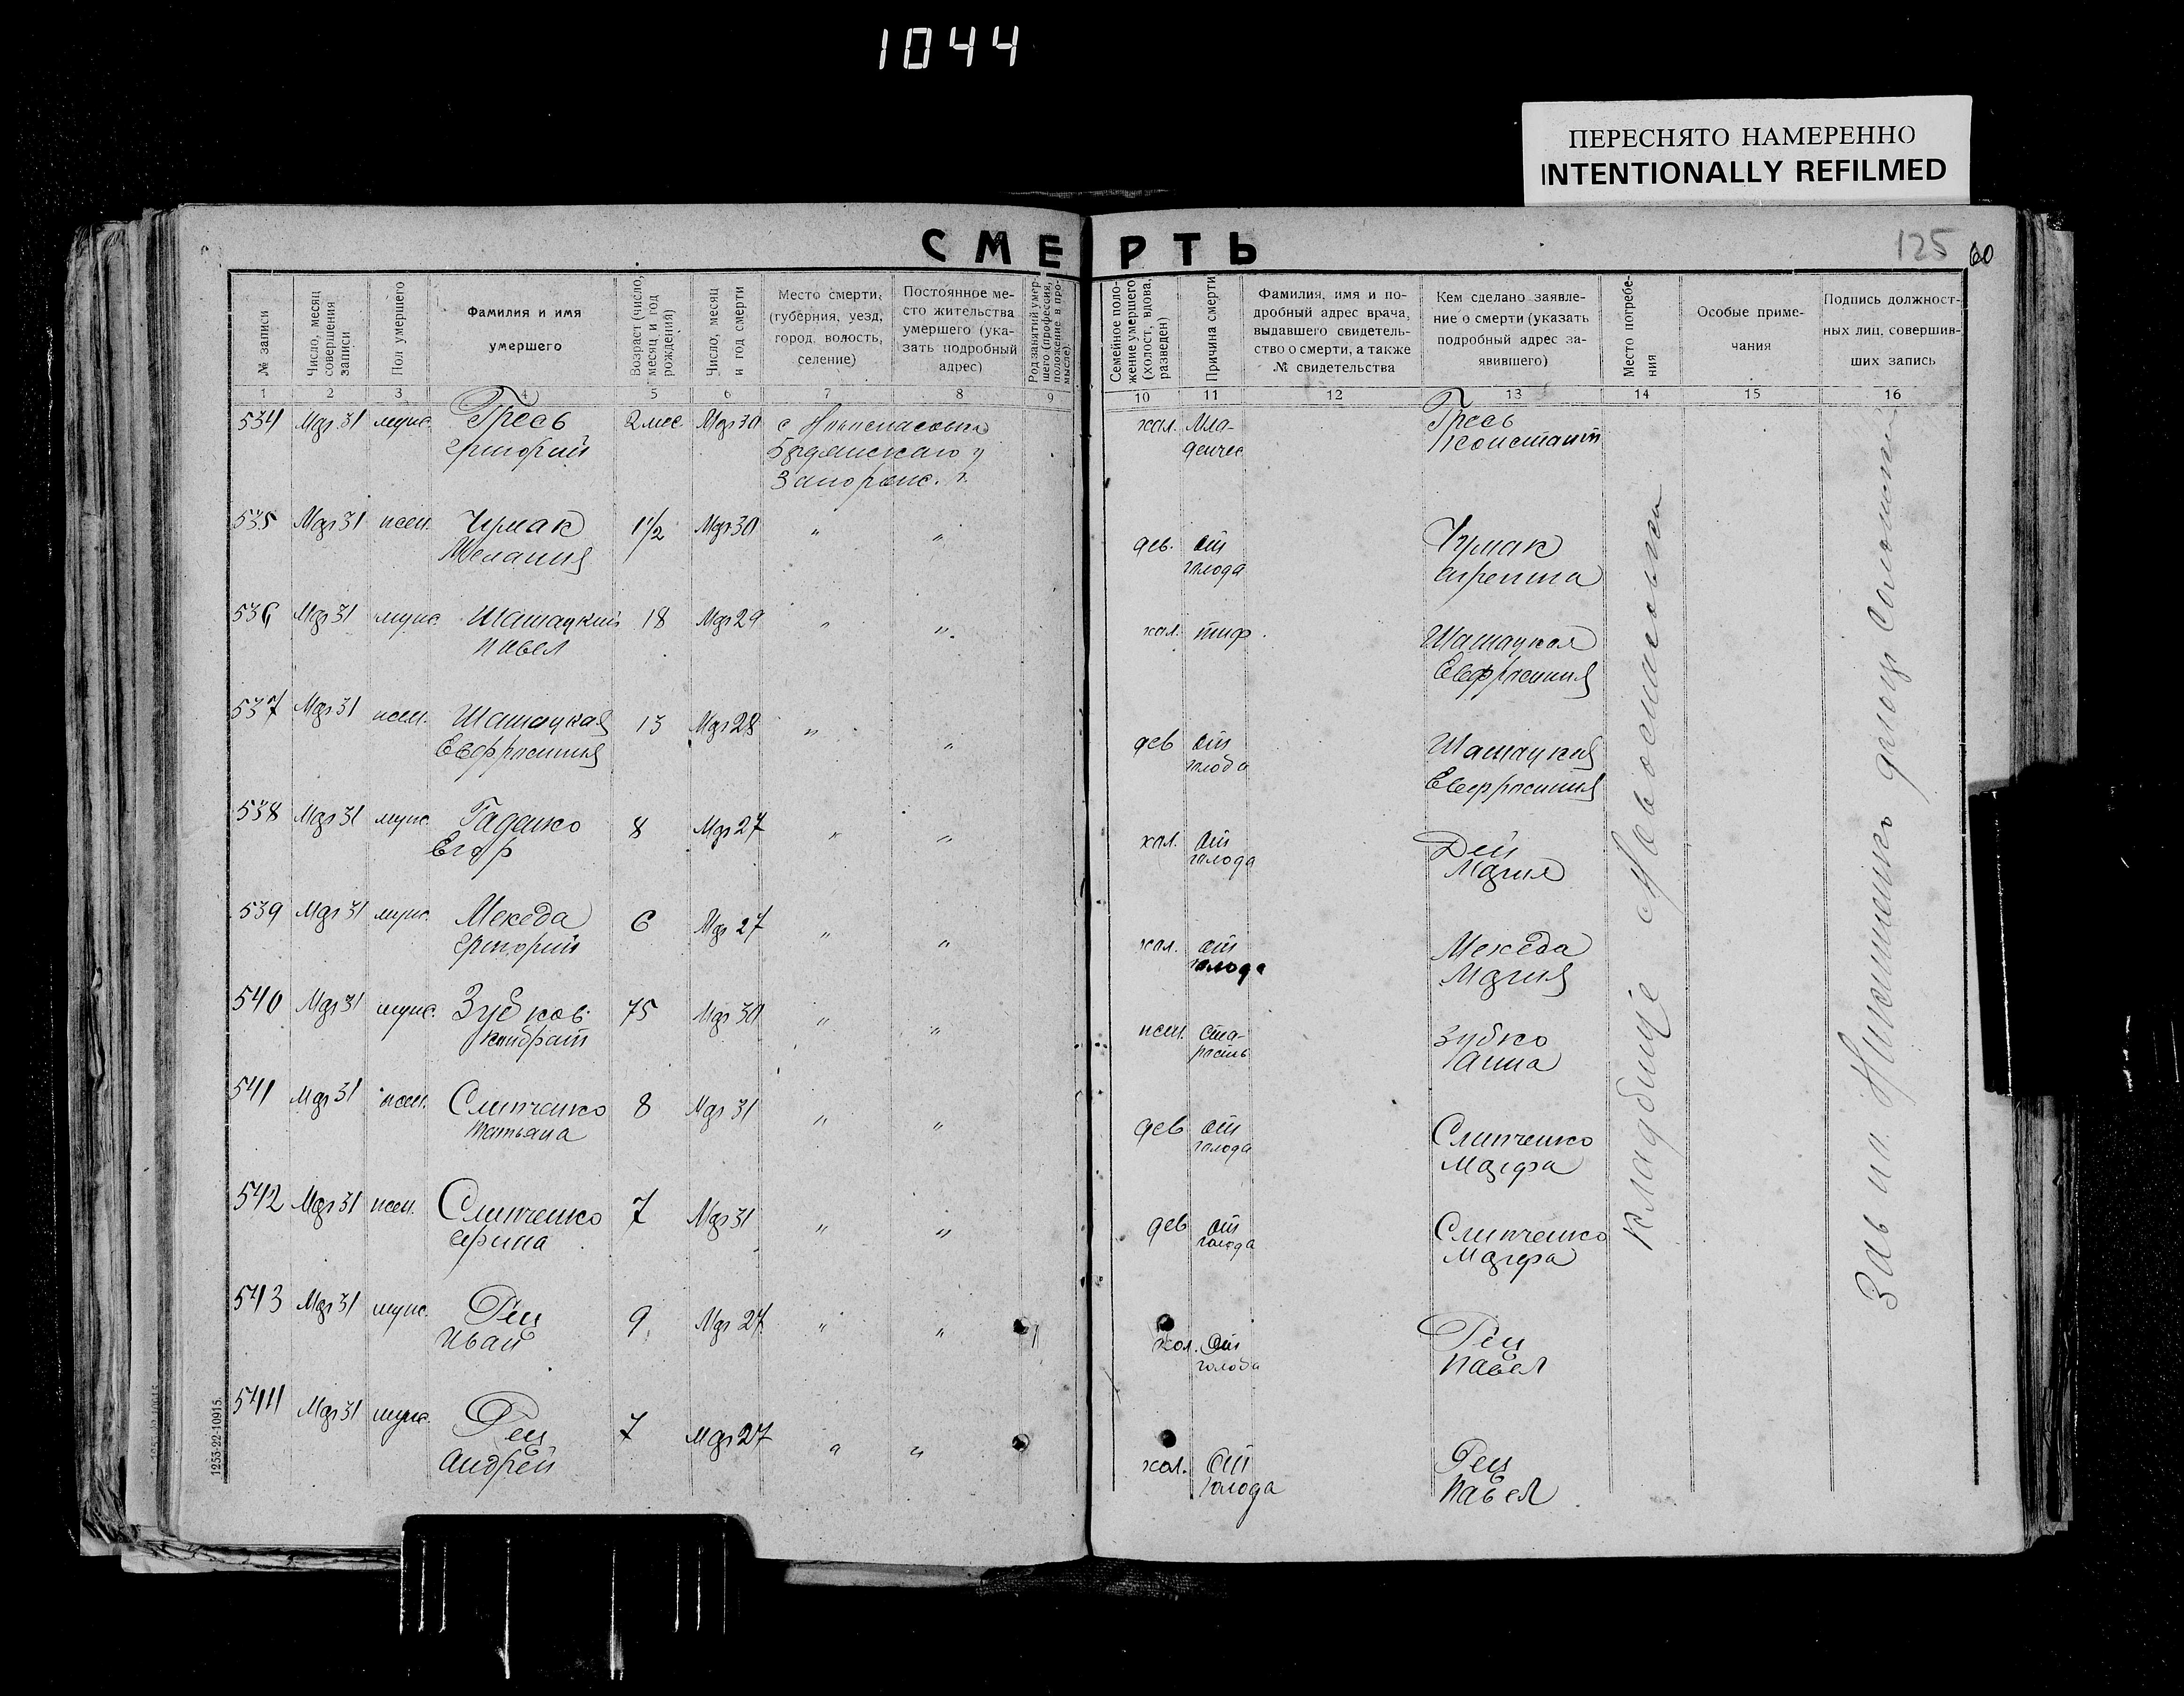 1044
ПЕРЕСНЯТО НАМЕРЕННО
INTENTIONALLY REFILMED
СМЕРТЬ
125 60
№ записи
Число, месяц совершения записи
Пол умершего
Фамилия и имя умершего
Возраст (число, месяц и год рождения)
Число, месяц и год смерти
Место смерти, (губерния, уезд, город, волость, селение)
Постоянное место жительства умершего (указать подробный адрес)
Род занятий умершего (профессия, положение в промысле).
Семейное положение умершего (холост, вдова, разведен)
Причина смерти
Фамилия, имя и подробный адрес врача, выдавшего свидетельство о смерти, а также № свидетельства
Кем сделано заявление о смерти (указать подробный адрес заявившего)
Место погребения
Особые примечания
Подпись должностных лиц, совершивших запись
1 2 3 4 5 6 7 8 9 10 11 12 13 14 15 16
534 Мая 31 муж. Гресь Григорий 2 мес Мая 30 с Новоспасовки Бердянского у Запорож. г. хол. Младенчес Гресь Констант
535 Мая 31 жен. Чумак Мелания 1 1/2 Мая 30 " " дев. от голода Чумак
536 Мая 31 муж. Павел 18 Мая 29 " " хол. тиф. Евфросиния
537 Мая 31 жен. Евфросиния 13 Мая 28 " " дев от голода Евфросиния
538 Мая 31 муж. Егор 8 Мая 27 " " хол. от голода Дей Мария
539 Мая 31 муж. Мекеда Григорий 6 Мая 27 " " хол. от голода Мекеда Мария
540 Мая 31 муж. Зубков Кондрат 75 Мая 30 " " жен. старость Зубко Анна
541 Мая 31 жен. Слипченко Татьяна 8 Мая 31 " " дев от голода Слипченко Марфа
542 Мая 31 жен. Слипченко Ирина 7 Мая 31 " " дев от голода Слипченко Марфа
543 Мая 31 муж. Рец Иван 9 Мая 27 " " хол. от голода Рец Павел
544 Мая 31 муж. Рец Андрей 7 Мая 27 " " хол. от голода Рец Павел
кладбище Новоспасовки
Зав
1253-22-10915.